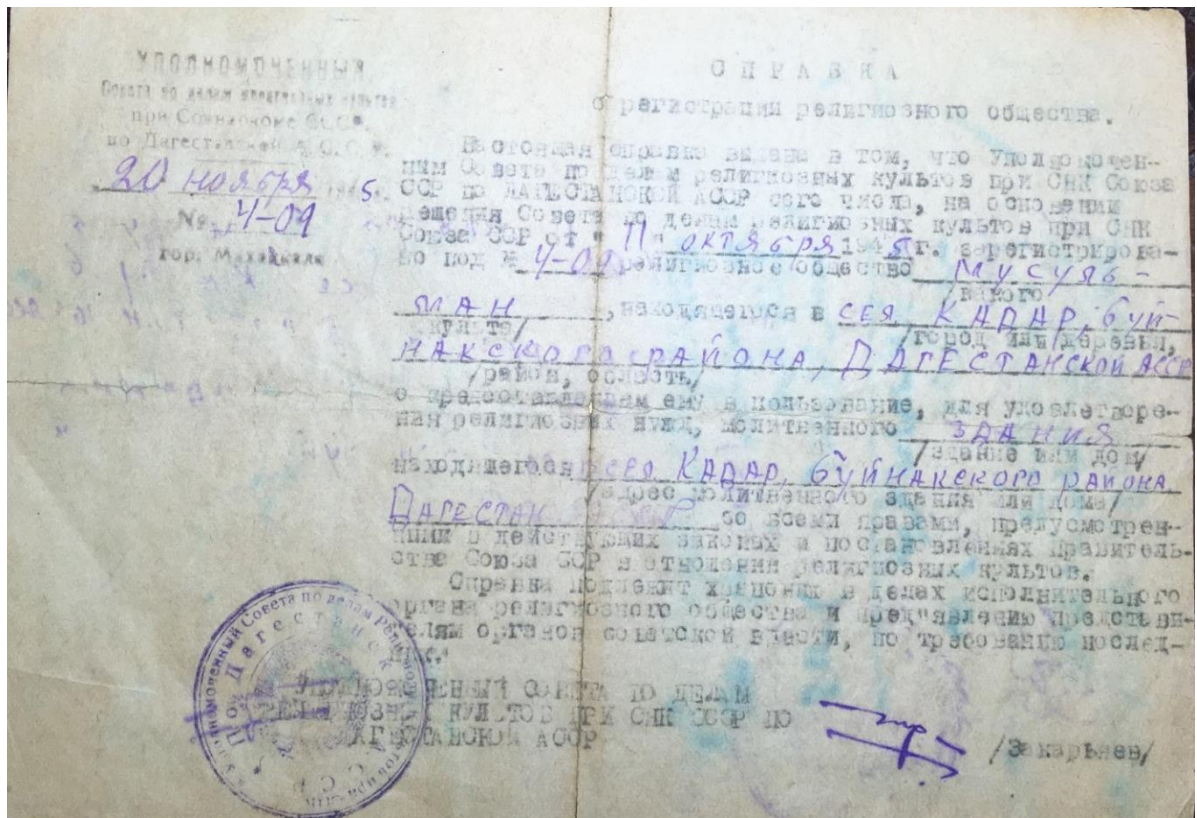 УПОЛНОМОЧЕННЫЙ
Совета по делам религиозных культов
при Совнаркоме СССР.
по Дагестанской А.С.С.Р.
20 ноября 1945.
№ 4-09
гор. Махачкала
СПРАВКА
о регистрации религиозного общества.
Настоящая справка выдана в том, что Уполномочен-
ным Совета по делам религиозных культов при СНК Союза
ССР по ДАГЕСТАНСКОЙ АССР сего числа, на основании
решения Совета по делам религиозных культов при СНК
Союза ССР от "11" октября 1945 г. зарегистрирова-
но под № 4-09 религиозное общество МУСУЛЬ-
/какого
МАН, находящегося в СЕЛ. КАДАР, БУЙ-
культа/ /город или деревья,
НАКСКОГО РАЙОНА, ДАГЕСТАНСКОЙ АССР
/район, область/
с предоставлением ему в пользование, для удовлетворе-
ния религиозных нужд, молитвенного ЗДАНИЯ
/здание или дом/
находящегося СЕЛ КАДАР, БУЙНАКСКОГО РАЙОНА
/адрес молитвенного здания или дома/
ДАГЕСТАН со всеми правами, предусмотрен-
ными в действующих законах и постановлениях Правитель-
стве Союза ССР в отношении религиозных культов.
Справка подлежит хранению в делах исполнительного
органа религиозного общества и пред"явлению представи-
телям органов советской власти, по требованию послед-
них.
УПОЛНОМОЧЕННЫЙ СОВЕТА ПО ДЕЛАМ
РЕЛИГИОЗНЫХ КУЛЬТОВ ПРИ СНК СССР ПО
ДАГЕСТАНСКОЙ АССР
/Закарьяев/
Уполномоченный Совета по делам Религиозных культов при СНК
По Дагестанск